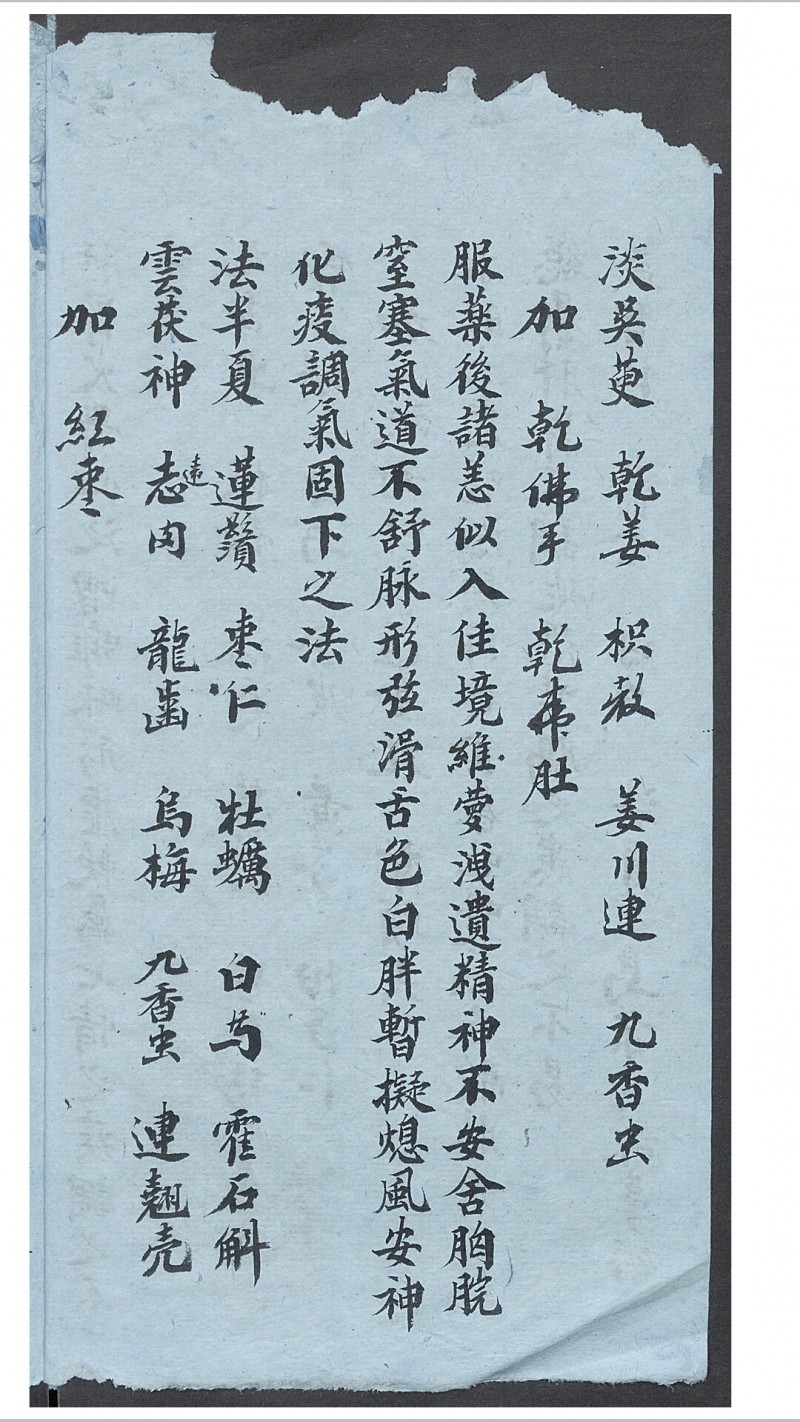 淡吳萸 乾姜 枳殼 姜川連 九香虫
加 乾佛手 乾韋肚
服藥後諸恙似入佳境維夢洩遺精神不安舍胸脘
窒塞氣道不舒脉形弦滑舌色白胖暫擬熄風安神
化痰調氣固下之法
法半夏 蓮鬚 枣仁 牡蠣 白芍 霍石斛
雲茯神 遠志肉 龍齒 烏梅 九香虫 連翹壳
加 紅枣